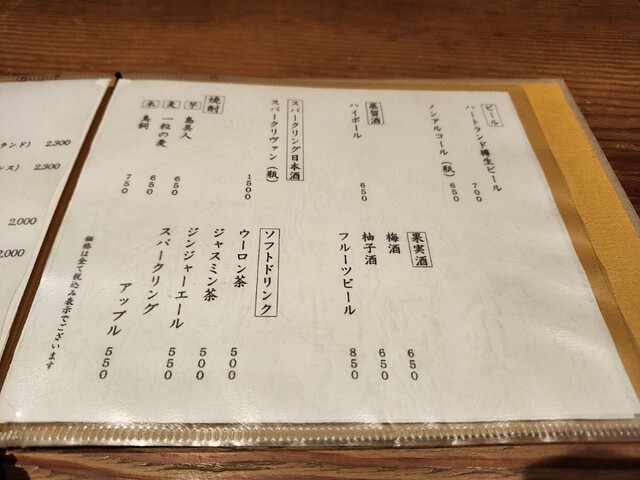 ビール
ハートランド樽生ビール 700
ノンアルコール(瓶) 650
蒸留酒
ハイボール 650
スパークリング日本酒
スパークリヴァン(瓶) 1500
焼酎
芋 島美人 650
麦 一粒の麦 650
米 鳥飼 750
果実酒
梅酒 650
柚子酒 650
フルーツビール 850
ソフトドリンク
ウーロン茶 500
ジャスミン茶 500
ジンジャーエール 550
スパークリング
アップル 550
価格は全て税込み表示でございます
ランド) 2,300
ス) 2,300
2,000
2,000